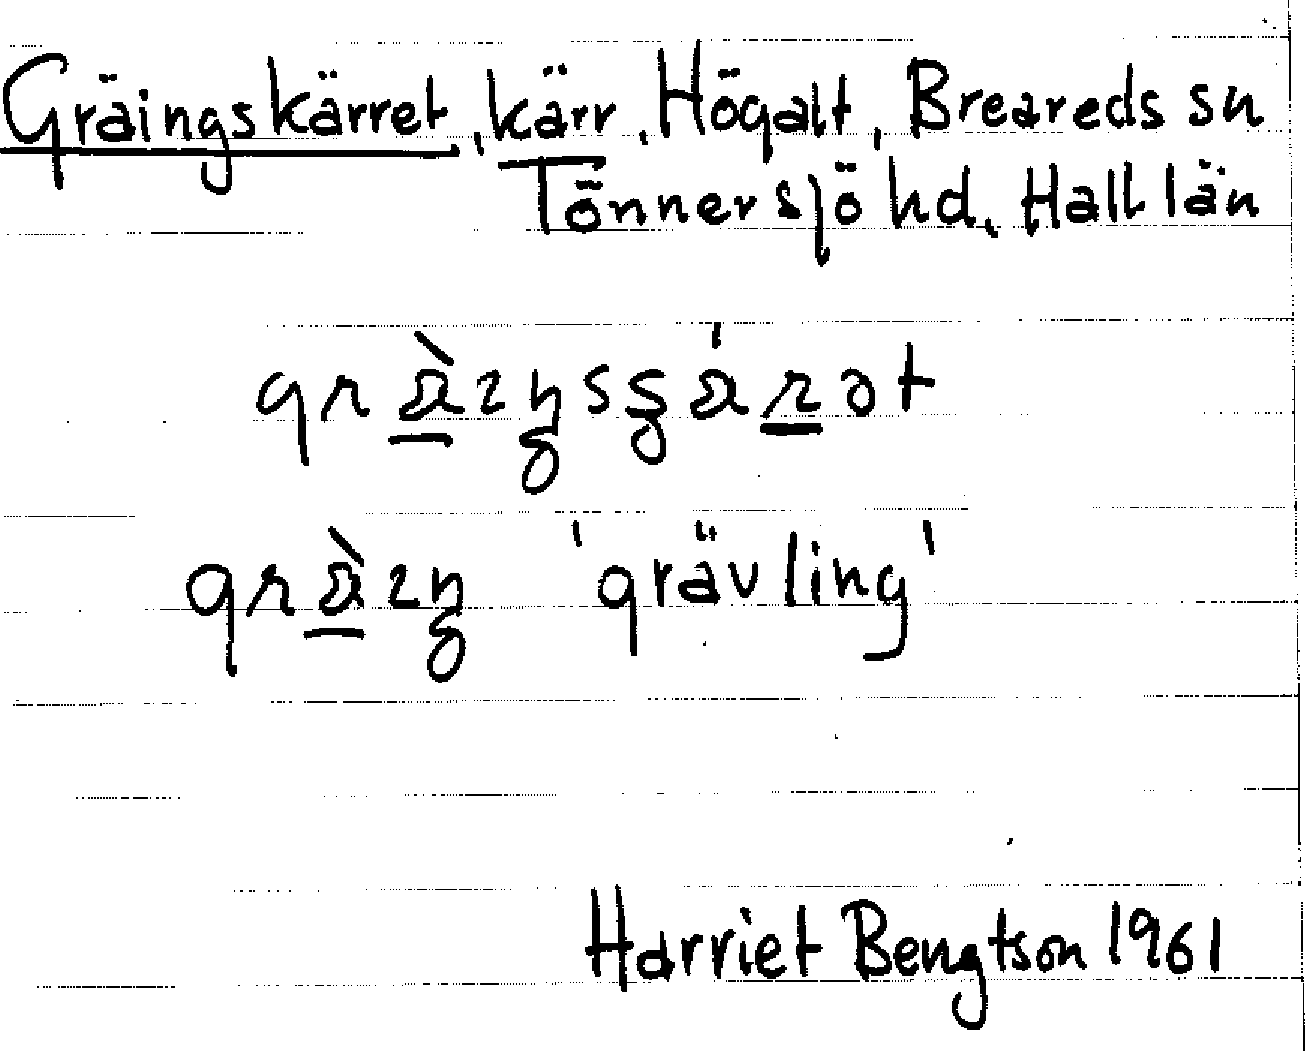 Gräingskärret, kärr, Högalt, Breareds sn
Tönnersjö hd. Hall län
'grävling'
Harriet Bengtson 1961